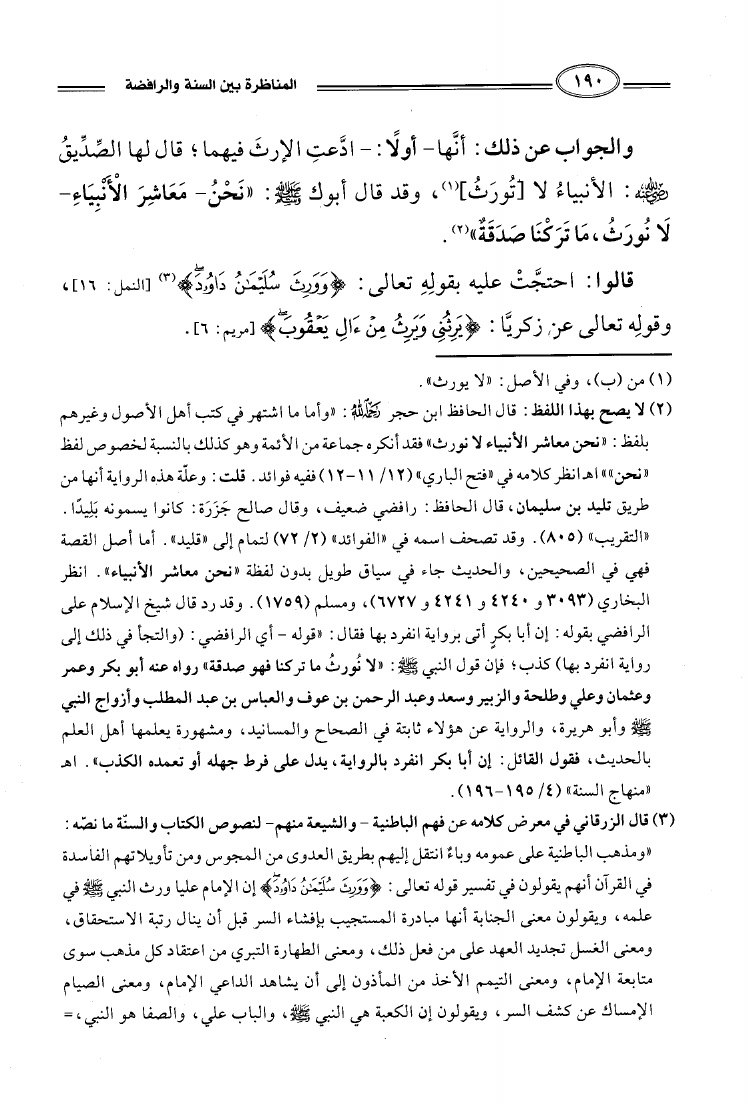 ١٩٠ المناظرة بين السنة والرافضة
والجواب عن ذلك: أنَّها- أولًا: - ادَّعتِ الإرثَ فيهما؛ قال لها الصِّدِّيقُ
رضي الله عنه: الأنبياءُ لا [تُورَثُ](١)، وقد قال أبوك ﷺ: «نَحْنُ- مَعَاشِرَ الْأَنْبِيَاءِ-
لَا نُورَثُ، مَا تَرَكْنَا صَدَقَةٌ»(٢).
قالوا: احتجَّتْ عليه بقولهِ تعالى: ﴿وَوَرِثَ سُلَيْمَٰنُ دَاوُۥدَۖ﴾(٣) [النمل: ١٦]،
وقولِه تعالى عن زكريَّا: ﴿يَرِثُنِى وَيَرِثُ مِنْ ءَالِ يَعْقُوبَۖ﴾ [مريم: ٦].
(١) من (ب)، وفي الأصل: «لا يورث».
(٢) لا يصح بهذا اللفظ: قال الحافظ ابن حجر رحمه الله: «وأما ما اشتهر في كتب أهل الأصول وغيرهم
بلفظ: «نحن معاشر الأنبياء لا نورث» فقد أنكره جماعة من الأئمة وهو كذلك بالنسبة لخصوص لفظ
«نحن»» اهـ انظر كلامه في «فتح الباري» (١٢/ ١١-١٢) ففيه فوائد. قلت: وعلّة هذه الرواية أنها من
طريق تليد بن سليمان، قال الحافظ: رافضي ضعيف، وقال صالح جَزَرَة: كانوا يسمونه بَلِيدًا.
«التقريب» (٨٠٥). وقد تصحف اسمه في «الفوائد» (٢/ ٧٢) لتمام إلى «قليد». أما أصل القصة
فهي في الصحيحين، والحديث جاء في سياق طويل بدون لفظة «نحن معاشر الأنبياء». انظر
البخاري (٣٠٩٣ و ٤٢٤٠ و ٤٢٤١ و ٦٧٢٧)، ومسلم (١٧٥٩). وقد رد قال شيخ الإسلام على
الرافضي بقوله: إن أبا بكرٍ أتى برواية انفرد بها فقال: «قوله - أي الرافضي: (والتجأ في ذلك إلى
رواية انفرد بها) كذب؛ فإن قول النبي ﷺ: «لا نُورثُ ما تركنا فهو صدقة» رواه عنه أبو بكر وعمر
وعثمان وعلي وطلحة والزبير وسعد وعبد الرحمن بن عوف والعباس بن عبد المطلب وأزواج النبي
ﷺ وأبو هريرة، والرواية عن هؤلاء ثابتة في الصحاح والمسانيد، ومشهورة يعلمها أهل العلم
بالحديث، فقول القائل: إن أبا بكر انفرد بالرواية، يدل على فرط جهله أو تعمده الكذب». اهـ
«منهاج السنة» (٤/ ١٩٥-١٩٦).
(٣) قال الزرقاني في معرض كلامه عن فهم الباطنية - والشيعة منهم- لنصوص الكتاب والسنّة ما نصّه:
«ومذهب الباطنية على عمومه وباءٌ انتقل إليهم بطريق العدوى من المجوس ومن تأويلاتهم الفاسدة
في القرآن أنهم يقولون في تفسير قوله تعالى: ﴿وَوَرِثَ سُلَيْمَٰنُ دَاوُۥدَۖ﴾ إن الإمام عليا ورث النبي ﷺ في
علمه، ويقولون معنى الجنابة أنها مبادرة المستجيب بإفشاء السر قبل أن ينال رتبة الاستحقاق،
ومعنى الغسل تجديد العهد على من فعل ذلك، ومعنى الطهارة التبري من اعتقاد كل مذهب سوى
متابعة الإمام، ومعنى التيمم الأخذ من المأذون إلى أن يشاهد الداعي الإمام، ومعنى الصيام
الإمساك عن كشف السر، ويقولون إن الكعبة هي النبي ﷺ، والباب علي، والصفا هو النبي، =